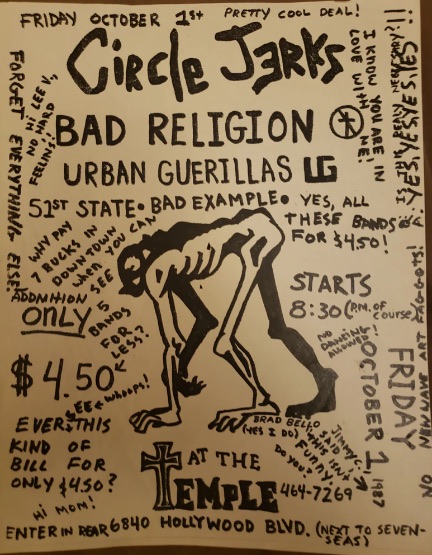 FRIDAY OCTOBER 1st PRETTY COOL DEAL!
CircLe JERKS
BAD RELIGION
URBAN GUERILLAS UG
51ST STATE• BAD EXAMPLE• YES, ALL
THESE BANDS
FOR $4.50!
WHY PAY
7 BUCKS IN
DOWNTOWN
WHEN YOU CAN
SEE
5
BANDS
FOR
LESS?
FORGET EVERYTHING ELSE
Hi LEE V,
NO HARD
FEELINGS!
I KNOW YOU ARE IN
LOVE WITH ME!
YES, YES, YES, YES
STARTS
8:30 (P.M. OF
course)
NO
DANCING!
ALLOWED
ADDMITION
ONLY
$4.50
SEE ← Whoops!
EVER THIS
KIND OF
BILL FOR
ONLY $4.50?
Hi MOM!
BRAD BELLO
(YES I DO)
JIMMY C.
SAID
THIS ISN'T
FUNNY.
Do you?
FRIDAY
OCTOBER 1, 1987
AT THE
TEMPLE 464-7269
ENTER IN REAR 6840 HOLLYWOOD BLVD. (NEXT TO SEVEN-
SEAS)